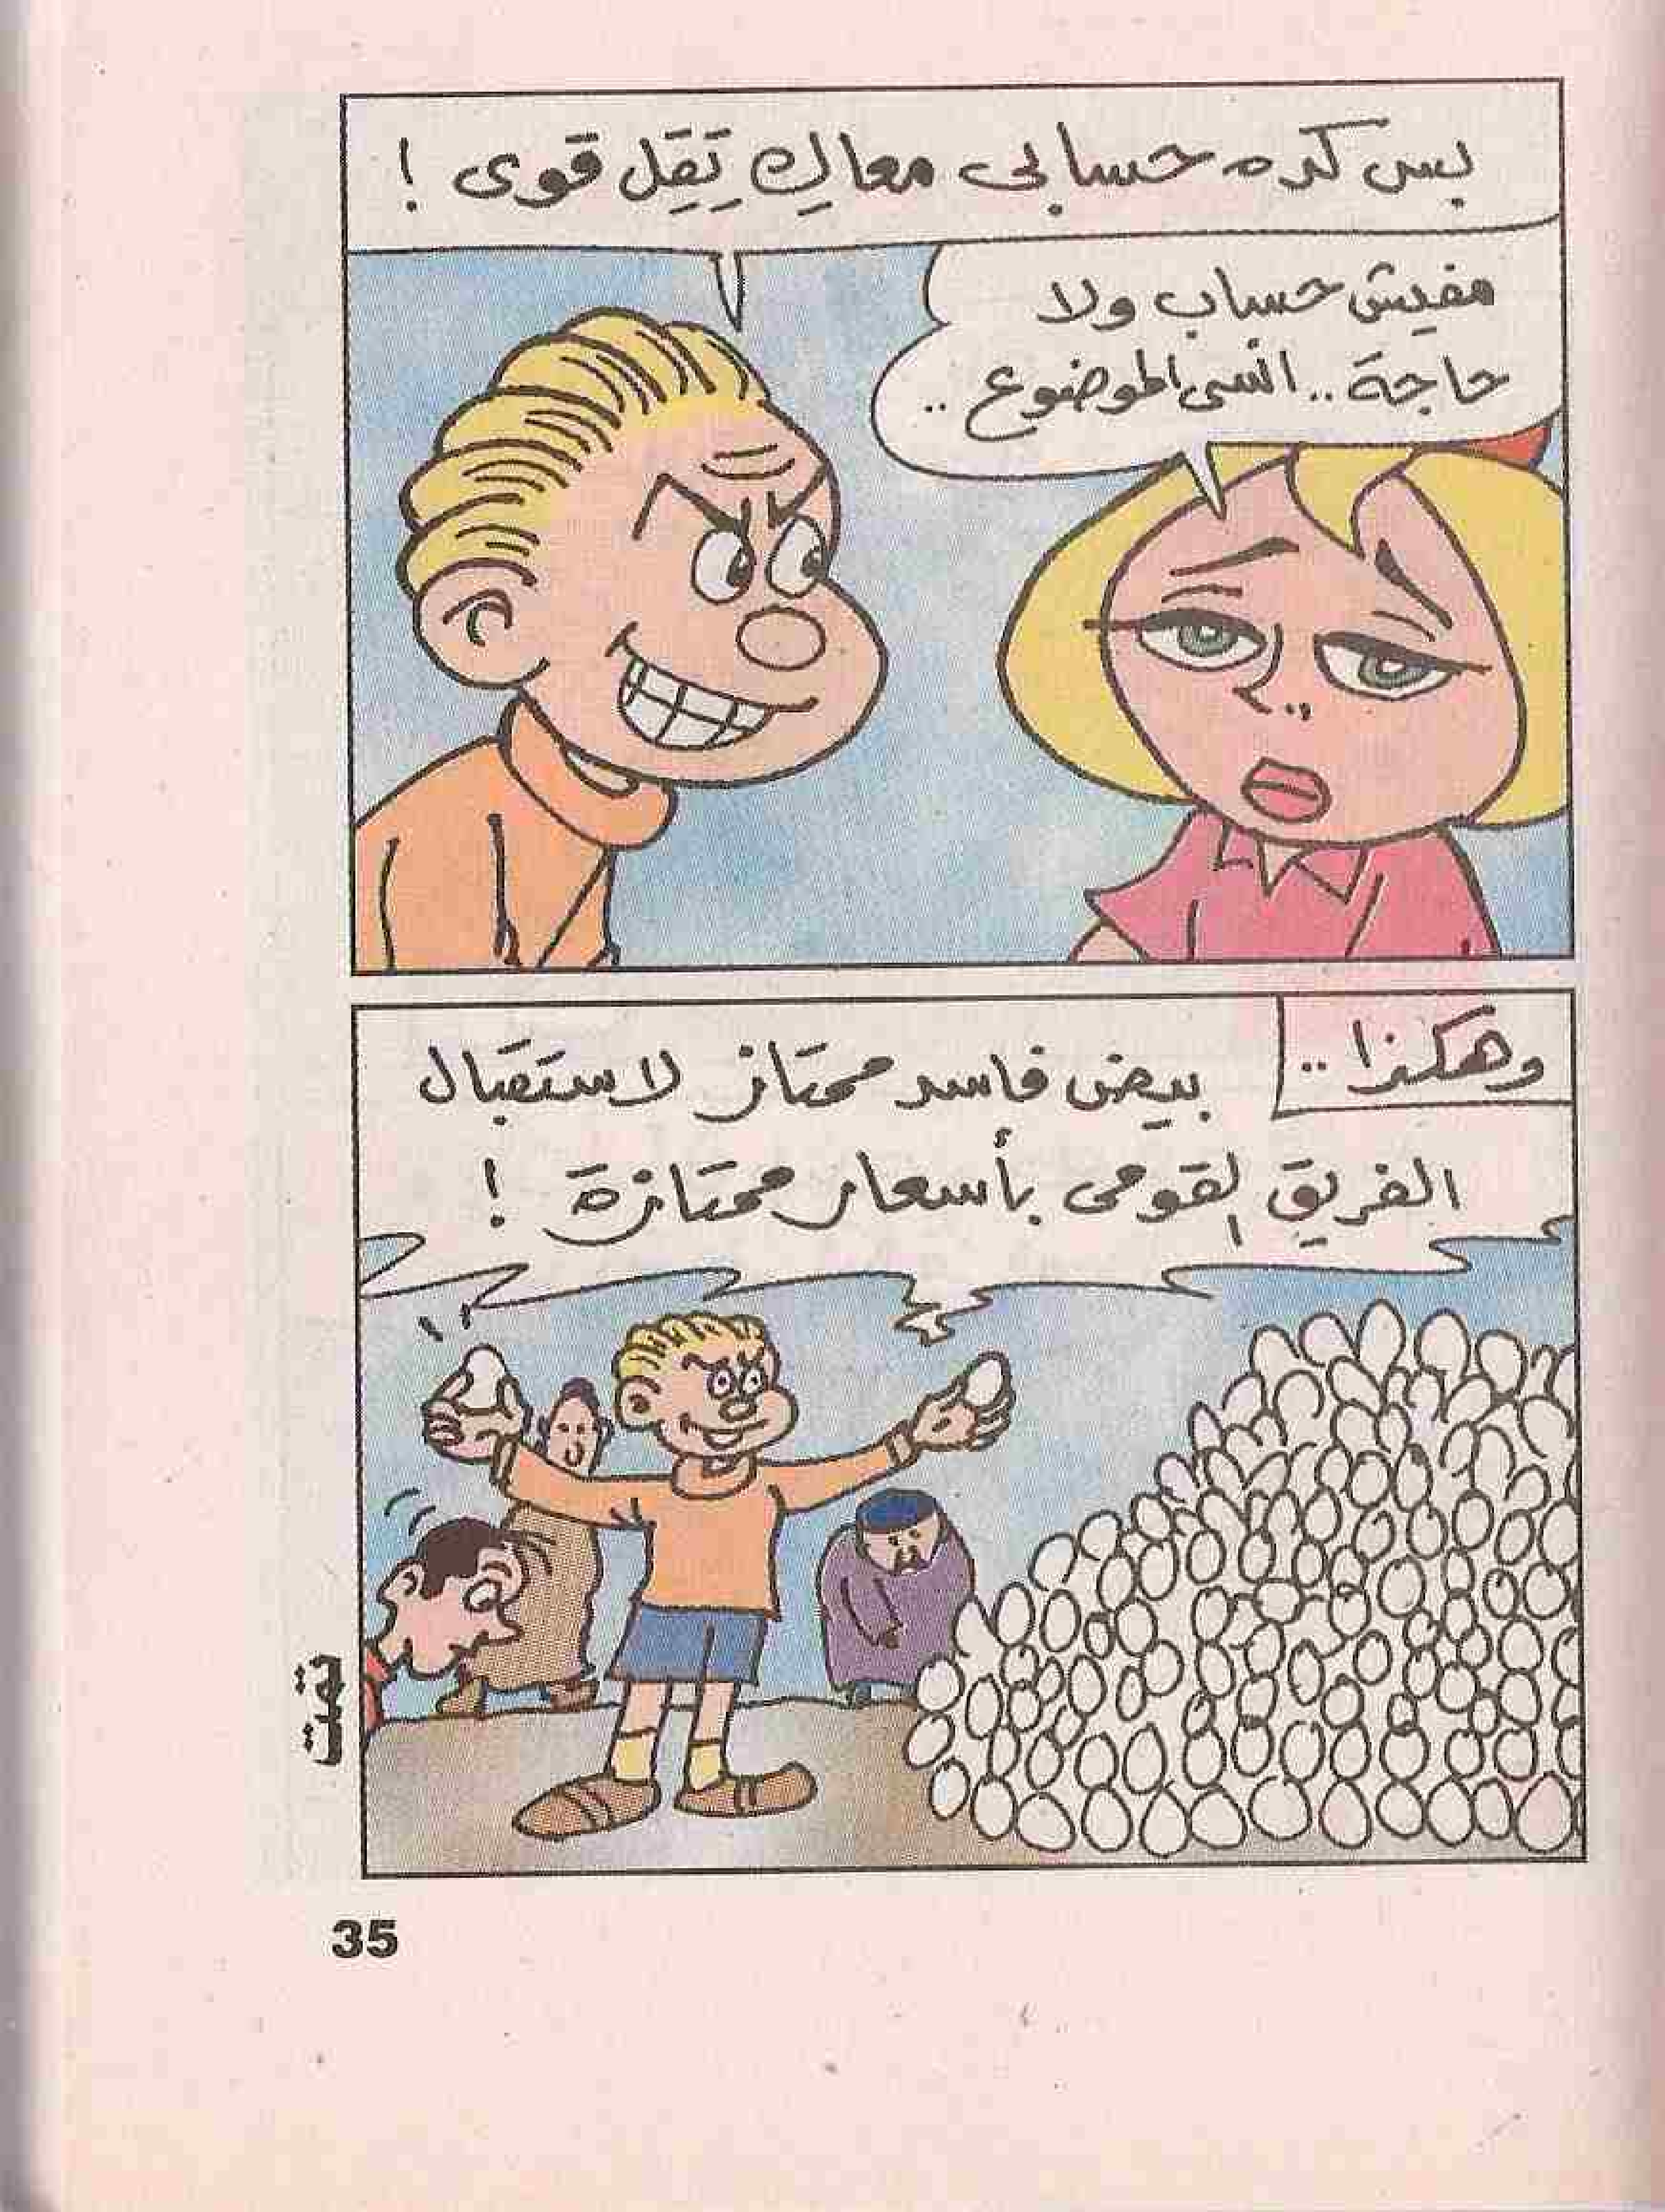 بس كده حسابى معاكِ تِقِل قوى !
مفيش حساب ولا
حاجة .. انسى الموضوع ..
وهكذا ..
بيض فاسد ممتاز لاستقبال
الفريق القومى بأسعار ممتازة !
35